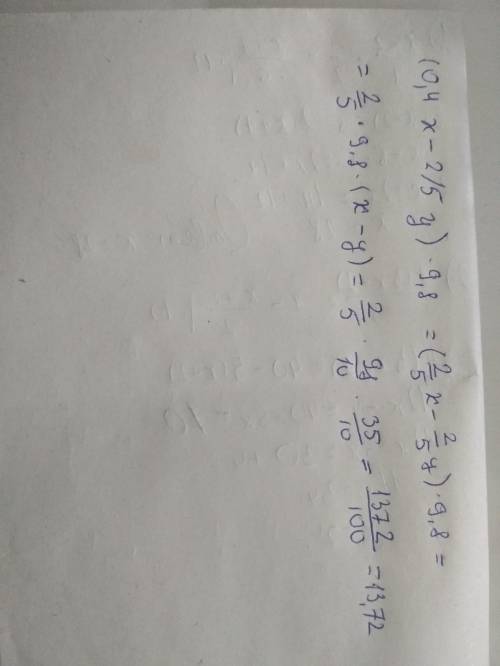 (0,4 x - 2/5 y) · 9,8 = (2/5 x - 2/5 y) · 9,8 =
= 2/5 · 9,8 · (x - y) = 2/5 · 98/10 · 35/10 = 1372/100 = 13,72